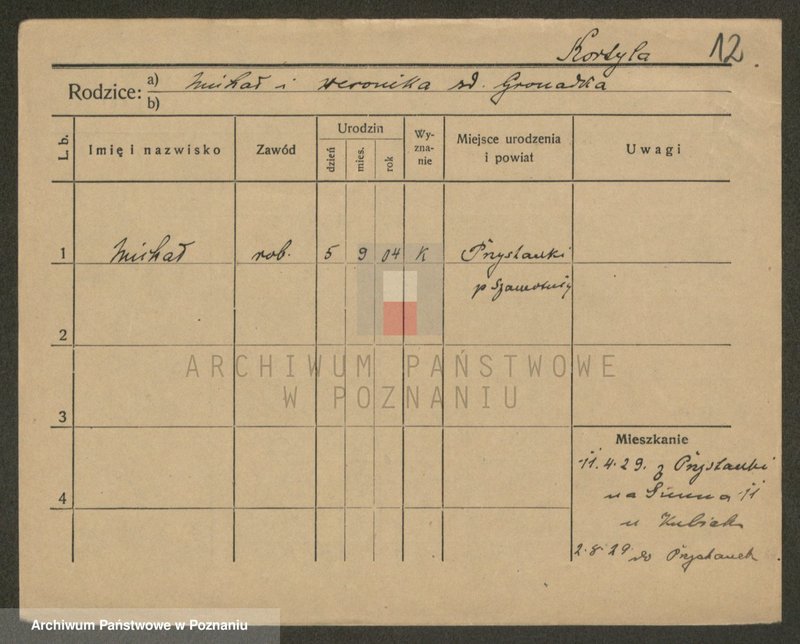 Kortyla 12.
Rodzice: a) Michał i Weronika zd. Gronadka
b)
L. b.
Imię i nazwisko
Zawód
Urodzin
dzień
mies.
rok
Wy-
zna-
nie
Miejsce urodzenia
i powiat
Uwagi
1 Michał rob. 5 9 04 K Przystanki
p Szamotuły
2
ARCHIWUM PAŃSTWOWE
W POZNANIU
3
Mieszkanie
11.4.29. z Przystanki
4
na 11
u Kubiak
2.8.29 do Przystanek
Archiwum Państwowe w Poznaniu